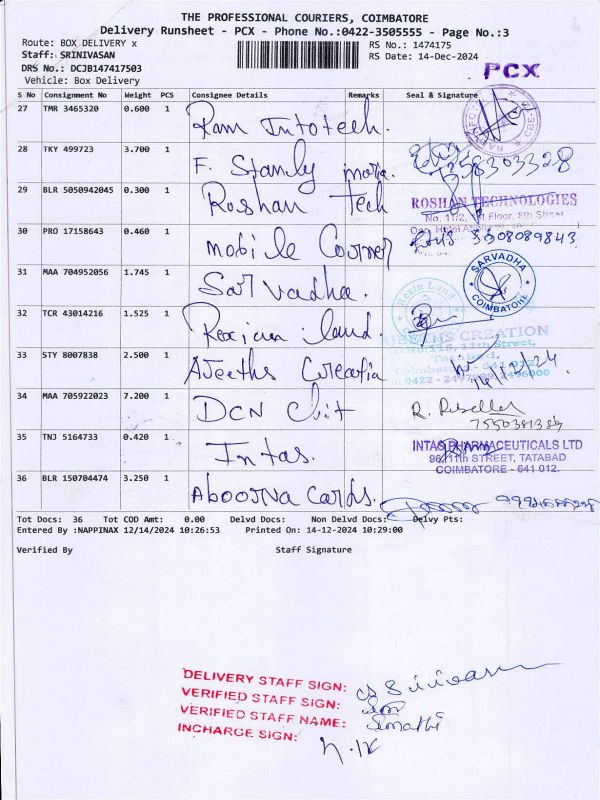 THE PROFESSIONAL COURIERS, COIMBATORE
Delivery Runsheet - PCX - Phone No.:0422-3505555 - Page No.:3
Route: BOX DELIVERY x
RS No.: 1474175
Staff: SRINIVASAN
RS Date: 14-Dec-2024
DRS No.: DCJB147417503
Vehicle: Box Delivery
PCX
S No Consignment No Weight PCS Consignee Details Remarks Seal & Signature
27 TMR 3465320 0.600 1 Ram Infotech.
28 TKY 499723 3.700 1 F. Stanly
29 BLR 5050942045 0.300 1 Roshan Tech
ROSHAN TECHNOLOGIES
30 PRO 17158643 0.460 1 Mobile Corner
31 MAA 704952056 1.745 1 Sarvadha.
SARVADHA
COIMBATORE
32 TCR 43014216 1.525 1 Rexian land.
Rexin Land
33 STY 8007838 2.500 1 Ajeeths Creatia
CREATION
34 MAA 705922023 7.200 1 DCN Chit
35 TNJ 5164733 0.420 1 Intas.
INTAS PHARMACEUTICALS LTD
96,11th STREET, TATABAD
COIMBATORE - 641 012.
36 BLR 150704474 3.250 1 Aboorva Cards.
Tot Docs: 36 Tot COD Amt: 0.00 Delvd Docs: Non Delvd Docs: Delvy Pts:
Entered By :NAPPINAX 12/14/2024 10:26:53 Printed On: 14-12-2024 10:29:00
Verified By Staff Signature
DELIVERY STAFF SIGN: Srinivasan
VERIFIED STAFF SIGN:
VERIFIED STAFF NAME: Sumathi
INCHARGE SIGN: